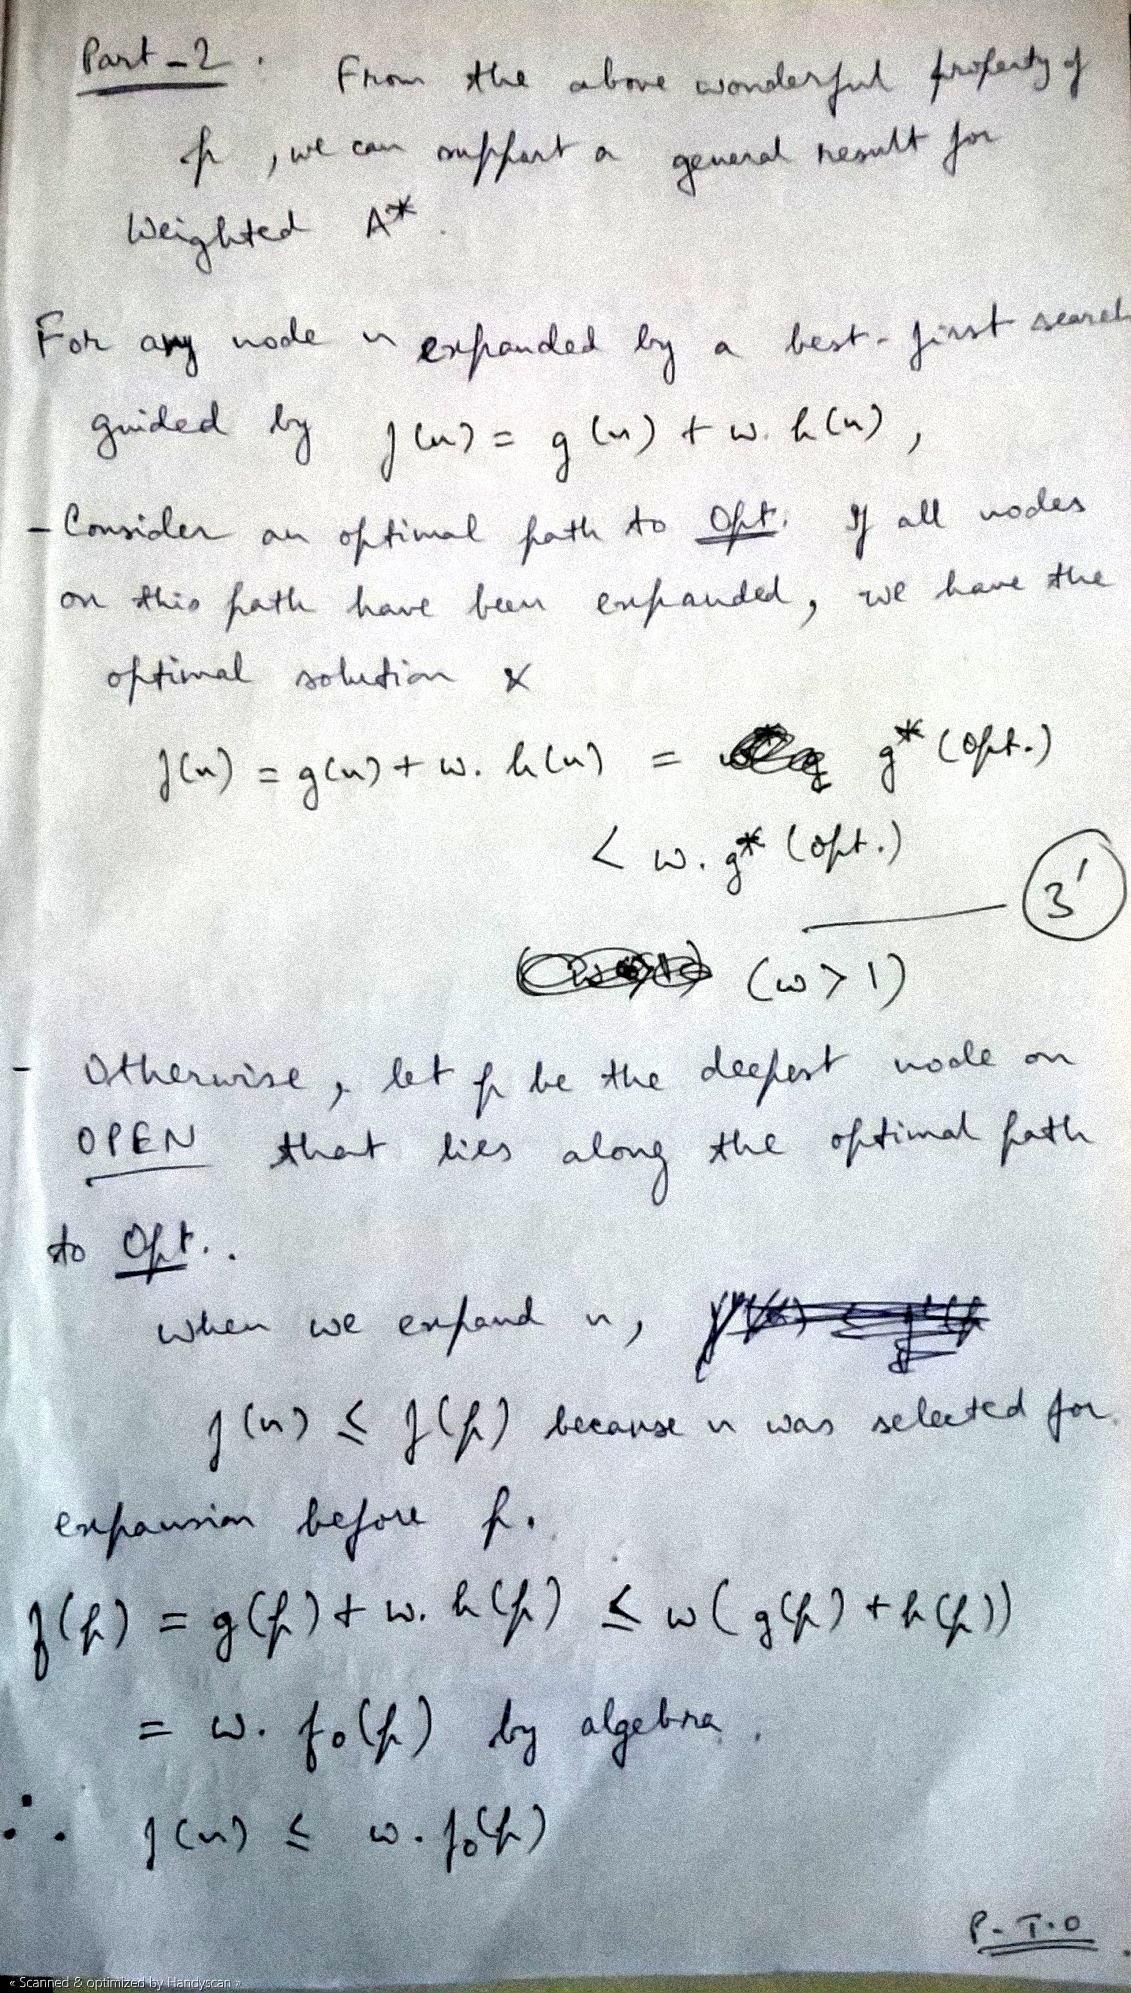 Part-2. From the above wonderful property of
p, we can support a general result for
Weighted A*.
For any node n expanded by a best-first search
guided by f(n) = g(n) + w. h(n),
- Consider an optimal path to Opt. If all nodes
on this path have been expanded, we have the
optimal solution &
f(n) = g(n) + w. h(n) = g* (Opt.)
< w. g* (Opt.)
3'
(w > 1)
- Otherwise, let p be the deepest node on
OPEN that lies along the optimal path
to Opt..
when we expand n,
f(n) ≤ f(p) because n was selected for
expansion before p.
f(p) = g(p) + w. h(p) ≤ w(g(p) + h(p))
= w. f₀(p) by algebra.
∴ f(n) ≤ w. f₀(p)
P.T.O
« Scanned & optimized by Handyscan »